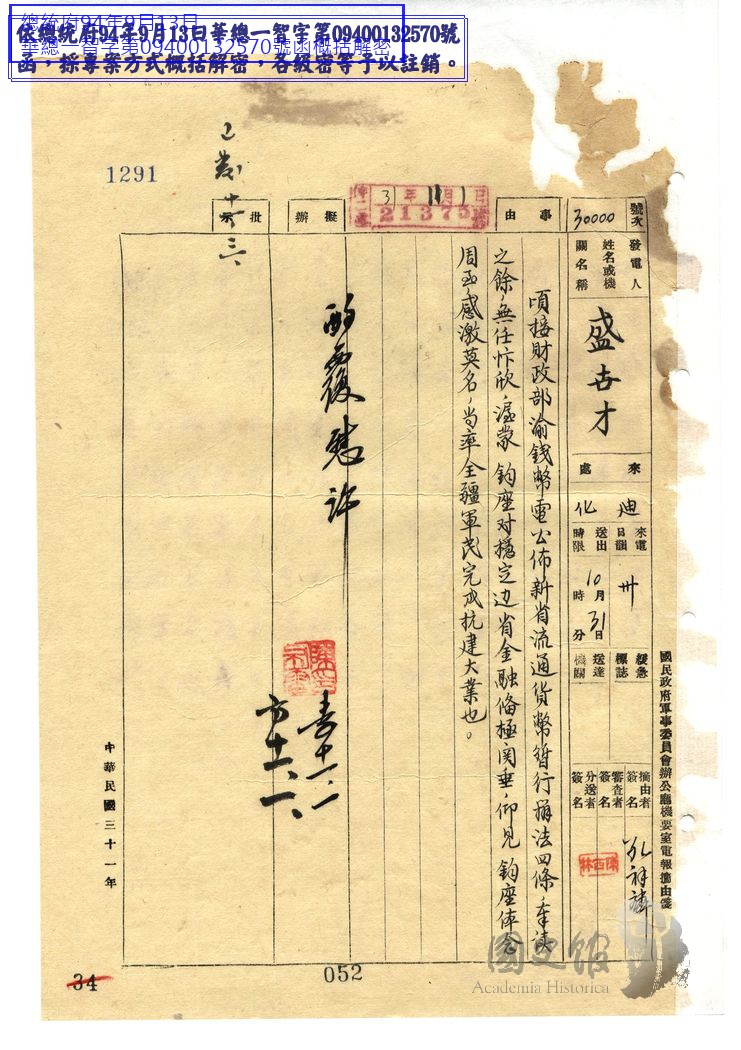 總統府94年9月13日
華總一智字第09400132570號函概括解密
依總統府94年9月13日華總一智字第09400132570號
函，採專案方式概括解密，各級密等予以註銷。
1291
號次
30000
事由
擬辦
批示
31年11月1日
21375
發電人
姓名或機
關名稱
盛世才
來處
迪化
來電
日韻
卅
送出
時限
10月31日
時 分
緩急
標誌
送達
機關
摘由者
簽名
審查者
簽名
分送者
簽名
國民政府軍事委員會辦公廳機要室電報摘由箋
頃接財政部渝錢幣電公佈新省流通貨幣暫行辦法四條，奉讀
之餘，無任忭欣，溯蒙 鈞座对穩定边省金融備極関垂，仰見 鈞座体念
周至，感激莫名，当率全疆軍民完成抗建大業也。
酌覆慰許
中華民國三十一年
34
052
國史館
Academia Historica